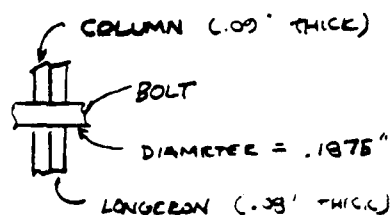 COLUMN (.09" THICK)
BOLT
DIAMETER = .1875"
LONGERON (.08" THICK)